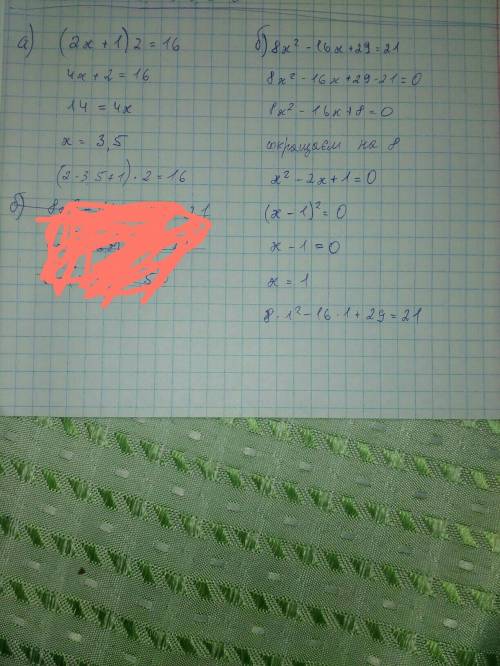 а) (2x+1)2=16
4x+2=16
14=4x
x=3,5
(2·3,5+1)·2=16
б)
б) 8x²-16x+29=21
8x²-16x+29-21=0
8x²-16x+8=0
сокращаем на 8
x²-2x+1=0
(x-1)²=0
x-1=0
x=1
8·1²-16·1+29=21